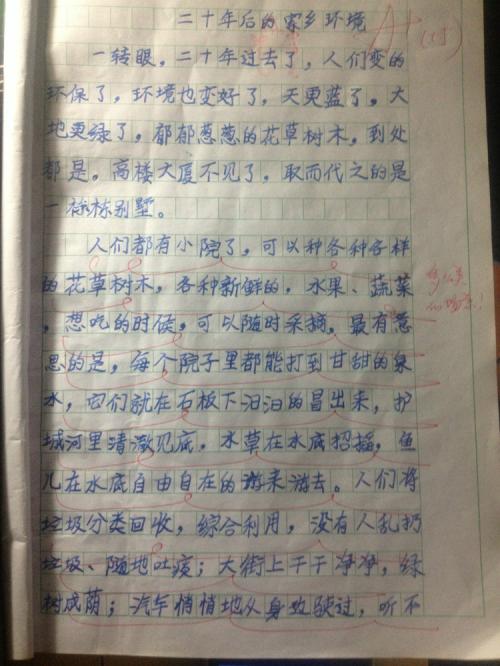 二十年后的家乡环境
A+
一转眼，二十年过去了，人们变的
环保了，环境也变好了，天更蓝了，大
地更绿了，郁郁葱葱的花草树木，到处
都是。高楼大厦不见了，取而代之的是
一栋栋别墅。
人们都有小院了，可以种各种各样
的花草树木，各种新鲜的，水果、蔬菜
，想吃的时候，可以随时采摘，最有意
思的是，每个院子里都能打到甘甜的泉
水，它们就在石板下汩汩的冒出来，护
城河里清澈见底，水草在水底招摇，鱼
儿在水底自由自在的游来游去。人们将
垃圾分类回收，综合利用，没有人乱扔
垃圾、随地吐痰；大街上干干净净，绿
树成荫；汽车悄悄地从身边驶过，听不